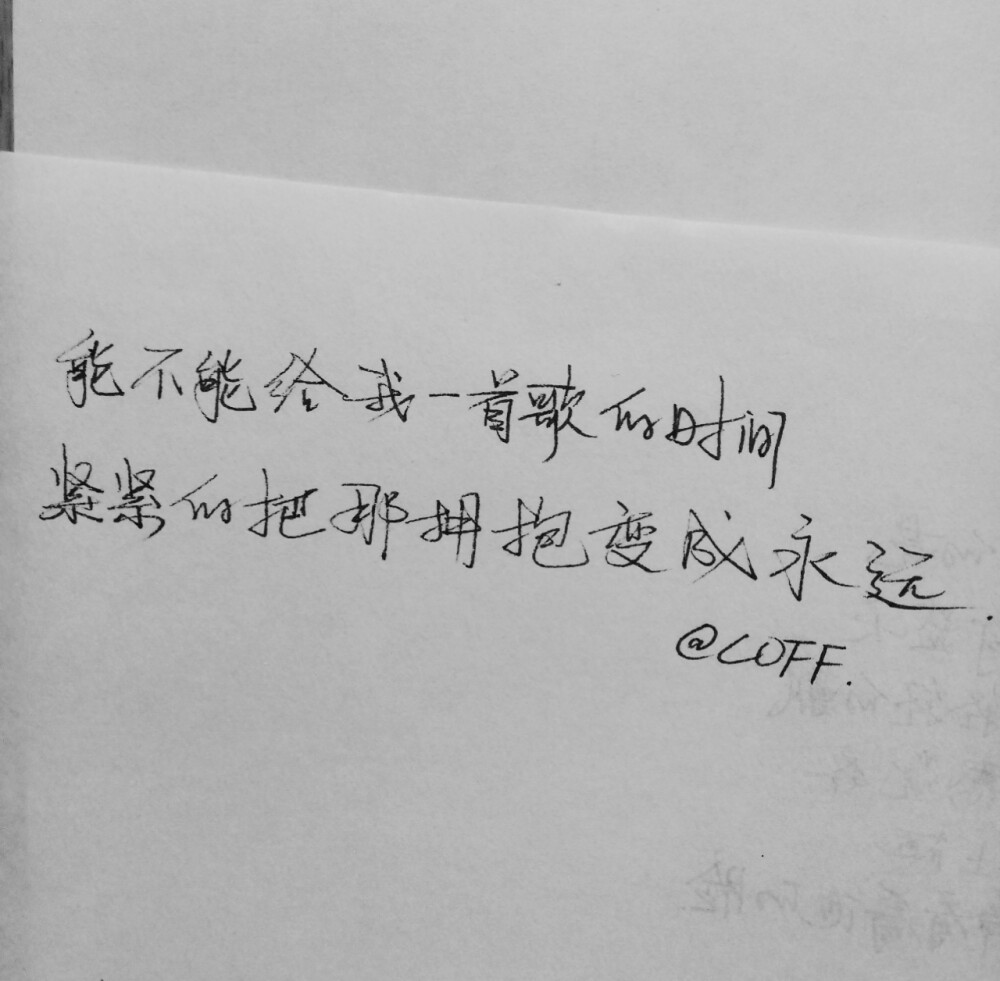 能不能给我一首歌的时间
紧紧的把那拥抱变成永远.
@COFF.